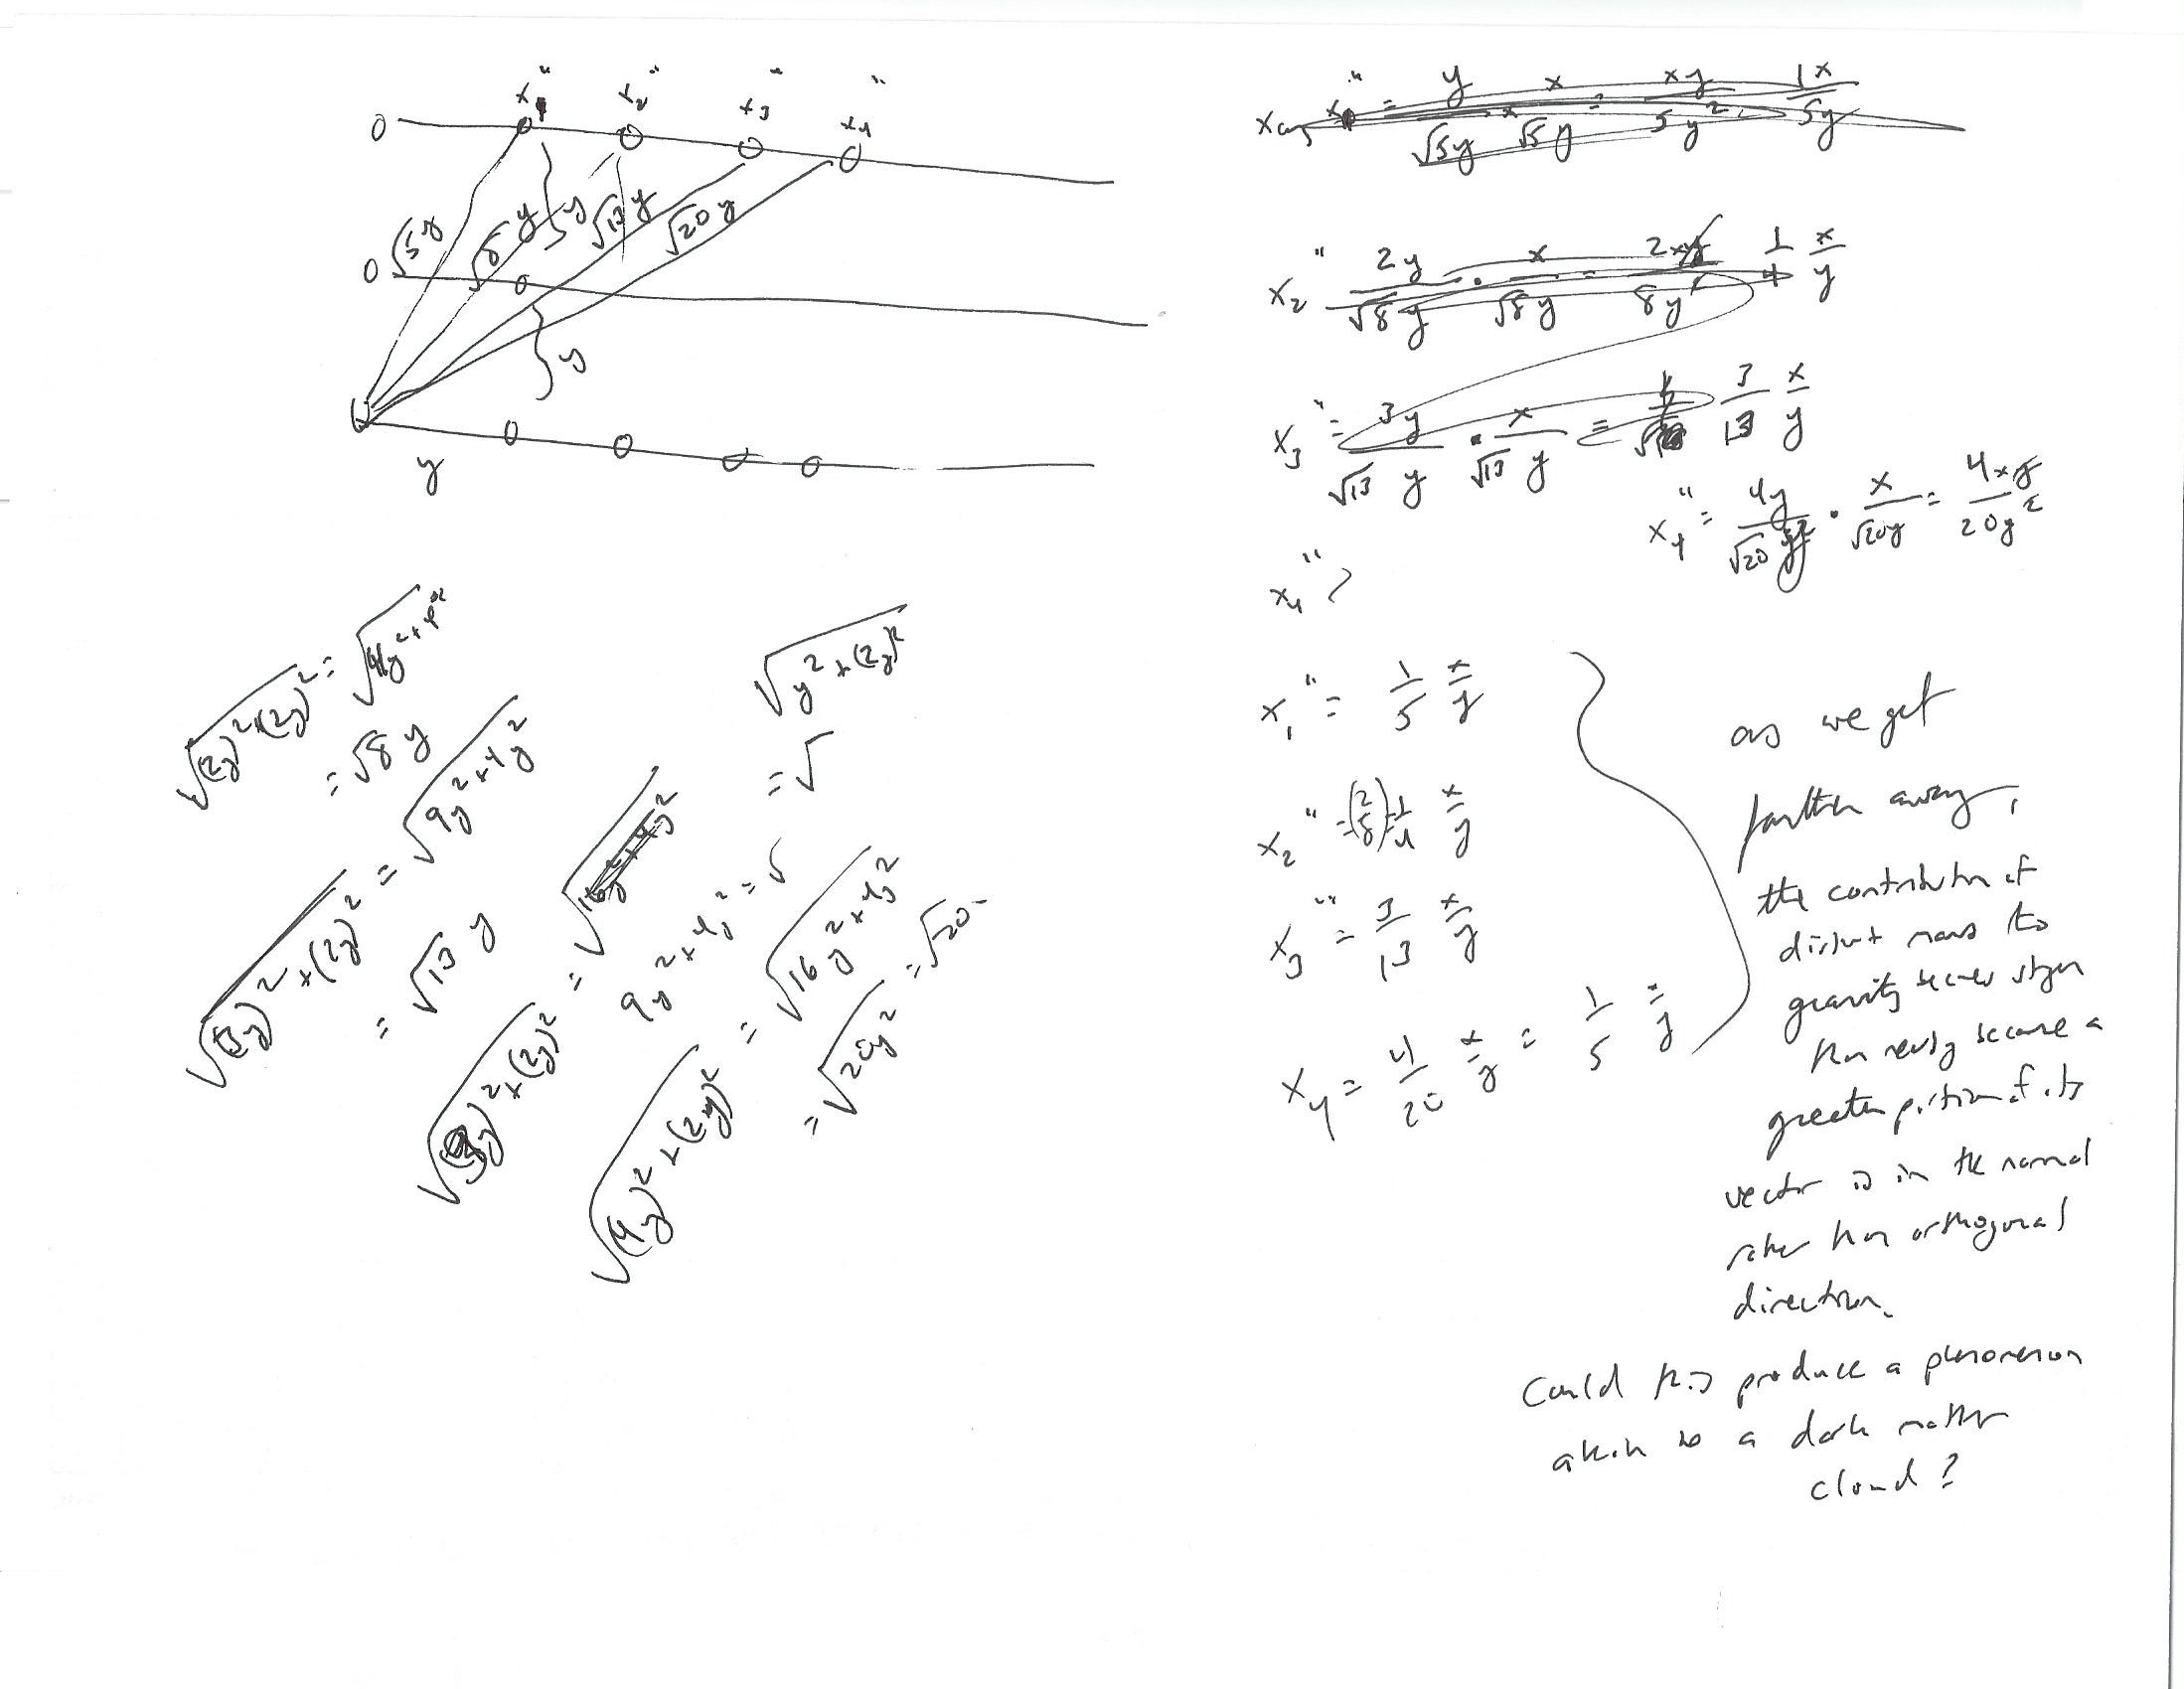 x₁" x₂" x₃" x₄"
0
√5y √8y y √13y √20y
0
y
y
x₁" = y/√5y · x/√5y = xy/5y² = 1x/5y
x₂" 2y/√8y · x/√8y = 2xy/8y² 1/4 x/y
x₃" = 3y/√13 y · x/√13 y = 3/13 x/y
x₄" = 4y/√20y · x/√20y = 4xy/20y²
x₄"
√(2y)²+(2y)² = √4y²+4y²
= √8 y
√(3y)²+(2y)² = √9y²+4y²
= √13 y
√y²+(2y)²
= √
√(3y)²+(2y)² = √16y²+4y²
9y²+4y² = √
√(4y)²+(2y)² = √16y²+4y²
= √20y² = √20
x₁" = 1/5 x/y
x₂" = (2/8) = 1/4 x/y
x₃" = 3/13 x/y
x₄ = 4/20 x/y = 1/5 x/y
as we get
farther away,
the contribution of
distant mass to
gravity seems stronger
than nearby because a
greater portion of its
vector is in the normal
rather than orthogonal
direction.
Could this produce a phenomenon
akin to a dark matter
cloud?